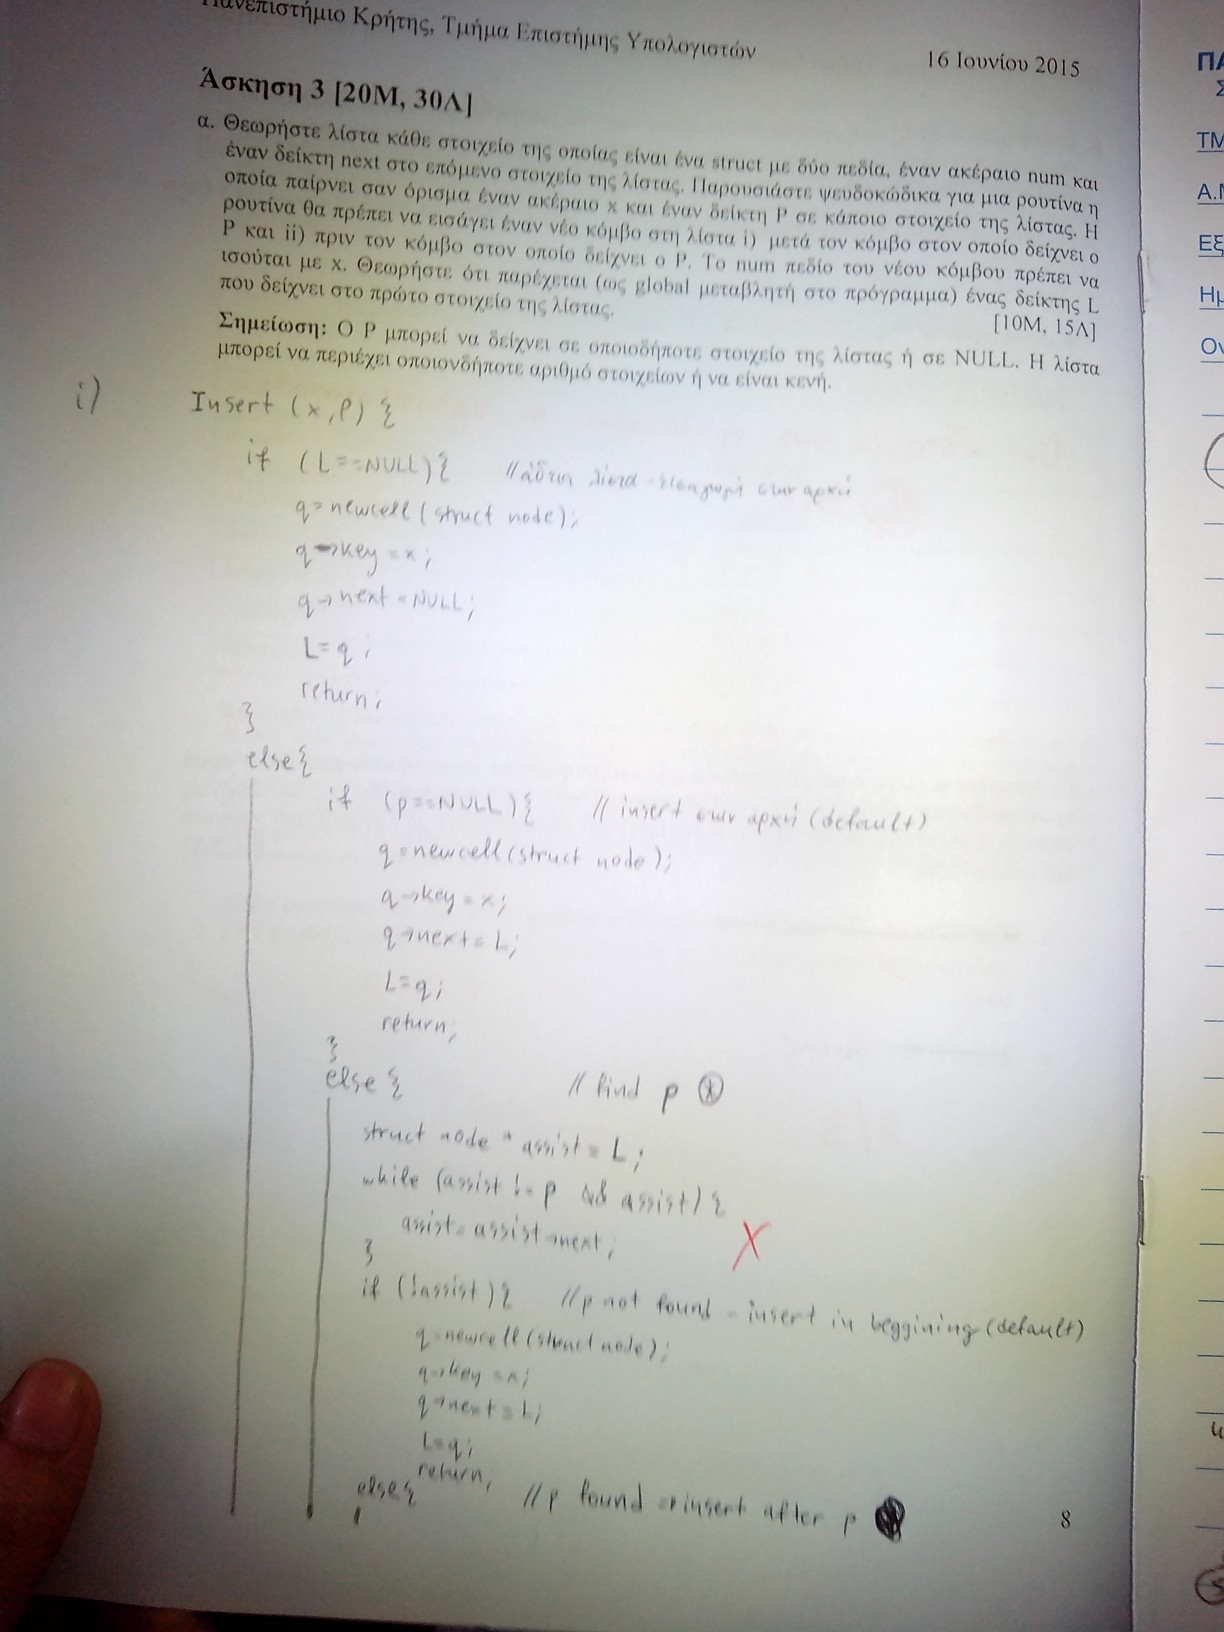 Πανεπιστήμιο Κρήτης, Τμήμα Επιστήμης Υπολογιστών
16 Ιουνίου 2015
Άσκηση 3 [20Μ, 30Λ]
α. Θεωρήστε λίστα κάθε στοιχείο της οποίας είναι ένα struct με δύο πεδία, έναν ακέραιο num και
έναν δείκτη next στο επόμενο στοιχείο της λίστας. Παρουσιάστε ψευδοκώδικα για μια ρουτίνα η
οποία παίρνει σαν όρισμα έναν ακέραιο x και έναν δείκτη P σε κάποιο στοιχείο της λίστας. Η
ρουτίνα θα πρέπει να εισάγει έναν νέο κόμβο στη λίστα i) μετά τον κόμβο στον οποίο δείχνει ο
P και ii) πριν τον κόμβο στον οποίο δείχνει ο P. Το num πεδίο του νέου κόμβου πρέπει να
ισούται με x. Θεωρήστε ότι παρέχεται (ως global μεταβλητή στο πρόγραμμα) ένας δείκτης L
που δείχνει στο πρώτο στοιχείο της λίστας.
[10Μ, 15Λ]
Σημείωση: Ο P μπορεί να δείχνει σε οποιοδήποτε στοιχείο της λίστας ή σε NULL. Η λίστα
μπορεί να περιέχει οποιονδήποτε αριθμό στοιχείων ή να είναι κενή.
i) Insert (x, P) {
if (L==NULL){ //άδεια λίστα - εισαγωγή στην αρχή
q=newcell(struct node);
q→key=x;
q→next=NULL;
L=q;
return;
}
else{
if (p==NULL){ // insert στην αρχή (default)
q=newcell(struct node);
q→key=x;
q→next=L;
L=q;
return;
}
else { // find p *
struct node * assist = L;
while (assist != p && assist) {
assist=assist→next;
}
if (!assist){ //p not found - insert in beggining (default)
q=newcell(struct node);
q→key=x;
q→next=L;
L=q;
return;
else{ //p found → insert after p
8
ΠΑ
Σ
ΤΜ
Α.Μ
Εξ
Ημ
Ον